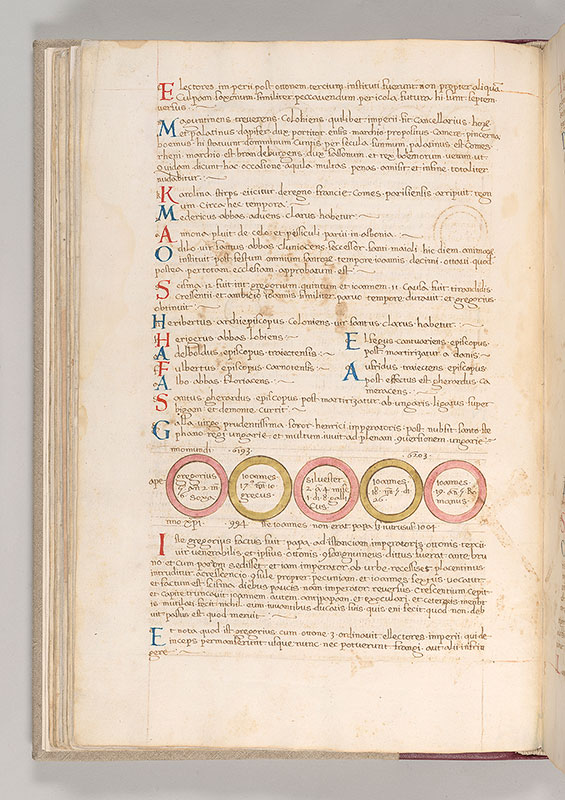 Electores imperii post ottonem tercium instituti fuerunt non propter aliqua
Culpam saxonum similiter peccavendum pericola futura hi sunt septem
versus
Maguntinens treverens Coloniens quilibet imperii fit Cancellarius hoze
et palatinus dapifer dux portitor ensis marchio prepositus Camere pincerna
boemus hi statuunt dominum cunctis per secula summum palatinus est Comes
rheni marchio est brandeburgens dux saxonum et rex boemorum verum ut
quidam dicunt hac occasione aquila multas penas amisit et in fine totaliter
nudabitur
Karolina stirps eicitur de regno francie Comes parisiensis arripuit regn
um Circa hec tempora
Medericus abbas aduens clarus habetur
Annona pluit de celo et pisciculi parui in asbonia
Odilo vir santus abbas cluniacens successor santi maioli hic diem animarum
instituit post festum omnium santorum tempore ioannis decimi ottavi quod
postea per totam ecclesiam approbatum est
Scisma 12 fuit int gregorium quintum et ioannem 17 Causa fuit tirannidis
Crescentii et ambicio ioannis similiter paruo tempore durauit et gregorius
obtinuit
Heribertus archiepiscopus Coloniens vir santus clarus habetur
Herigerus abbas lobiens
Adelboldus episcopus traiectensis
Fulbertus episcopus carnotensis
Albo abbas floriacens
Elfegus cantuariens episcopus
post martirizatur a danis
Aufridus traiecens episcopus
post effectus est gherardus ca
meracens
Santus gherardus episcopus post martirizatur ab ungaris ligatus super
bigam et de monte currit
Galla virgo prudentissima soror henrici imperatoris post nubsit santo ste
phano regi ungarie et multum iuuit ad plenam conversionem ungarie
nno mundi 6193 6203
ape
gregorius
5 ann 2 m
6 saxo
ioannes
17 m 10
grecus
silvester
2 a 4 mse
1 d 8 galli
cus
ioannes
18 m 5 di
26
ioannes
19 an 5 Ro
manus
nno XPI 994 Iste ioannes non erat papa sed intrusus 1004
Iste gregorius factus fuit papa ad istanciam imperatoris ottonis tercii
vir venerabilis et ipsius ottonis consanguineus dictus fuerat ante bru
no et cum parum sedisset et iam imperator ab urbe recessisset placentinus
intruditur a crescencio consule propter pecuniam et ioannes sextus vocatur
et factum est scisma diebus paucis nam imperator reversus crescentium cepit
et capite truncavit ioannem autem antipapam et exoculari et ceteris membr
is mutilari fecit nichil eum iuvantibus ducatis suis quis eni fecit quod non deb
uit passus est quod meruit
Et nota quod ist gregorius cum ottone 3 ordinavit ellectores imperii qui de
inceps permanserunt usque nunc nec potuerunt frangi aut alii infrin
gere